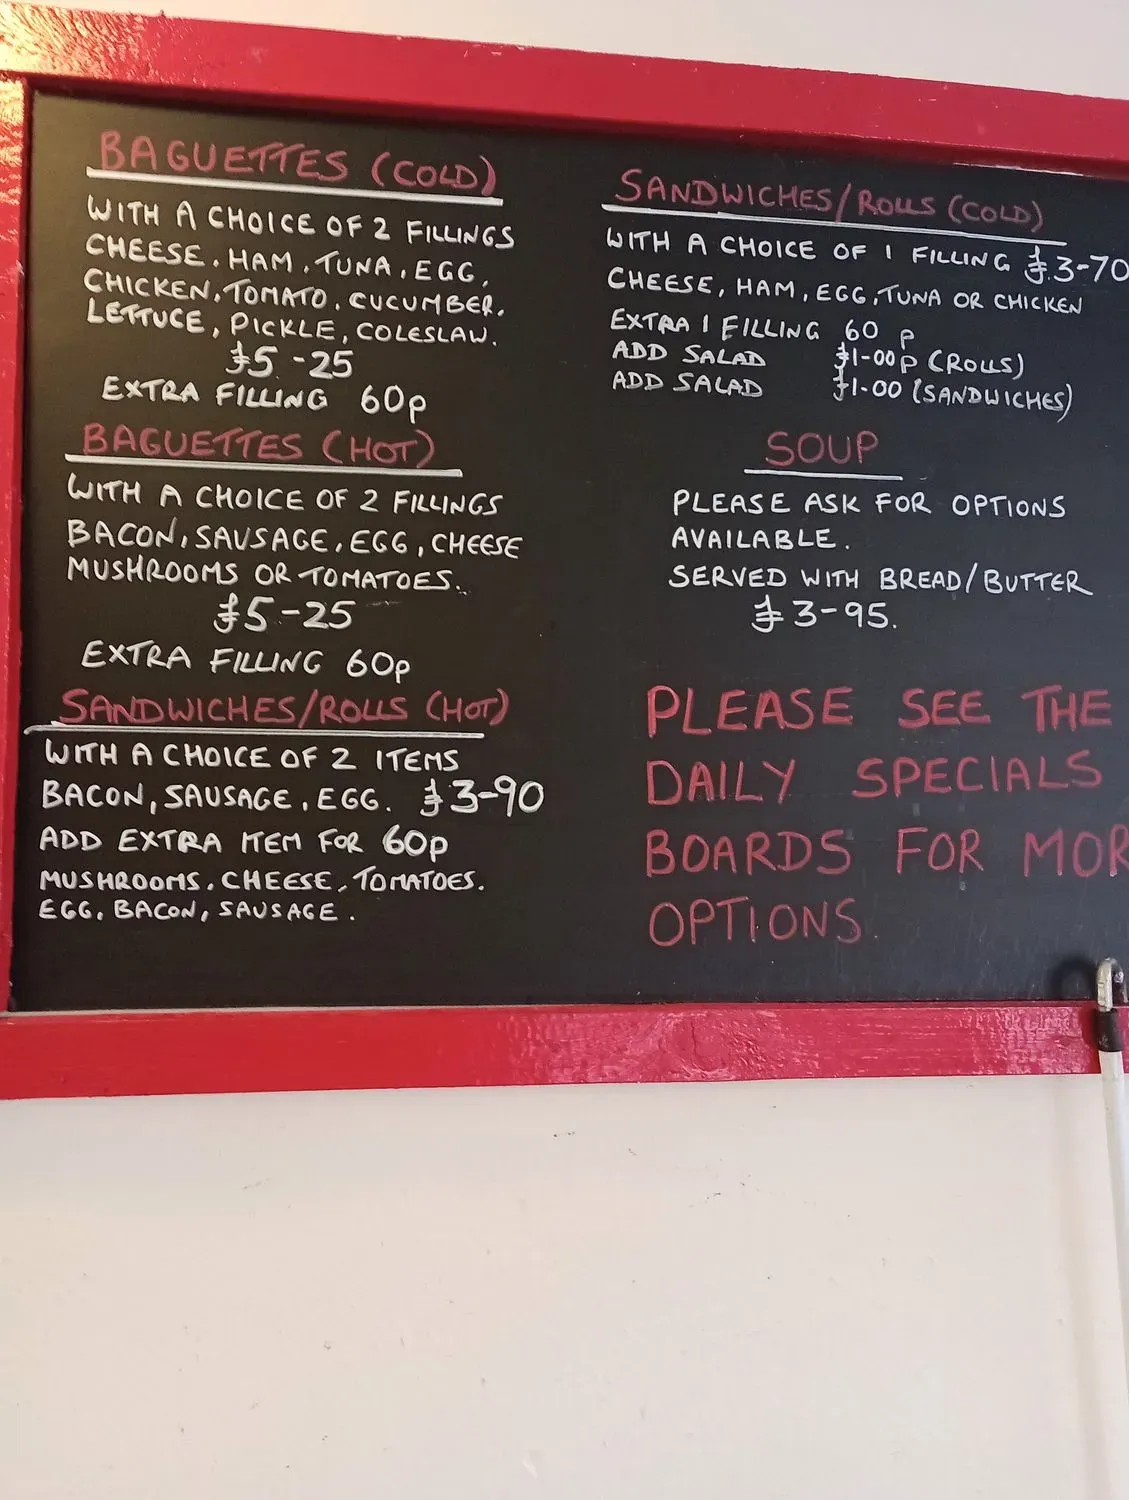 BAGUETTES (COLD)
WITH A CHOICE OF 2 FILLINGS
CHEESE, HAM, TUNA, EGG,
CHICKEN, TOMATO, CUCUMBER,
LETTUCE, PICKLE, COLESLAW.
£5-25
EXTRA FILLING 60p
BAGUETTES (HOT)
WITH A CHOICE OF 2 FILLINGS
BACON, SAUSAGE, EGG, CHEESE
MUSHROOMS OR TOMATOES.
£5-25
EXTRA FILLING 60p
SANDWICHES/ROLLS (HOT)
WITH A CHOICE OF 2 ITEMS
BACON, SAUSAGE, EGG. £3-90
ADD EXTRA ITEM FOR 60p
MUSHROOMS, CHEESE, TOMATOES.
EGG, BACON, SAUSAGE.
SANDWICHES/ROLLS (COLD)
WITH A CHOICE OF 1 FILLING £3-70
CHEESE, HAM, EGG, TUNA OR CHICKEN
EXTRA 1 FILLING 60 p
ADD SALAD £1-00p (ROLLS)
ADD SALAD £1.00 (SANDWICHES)
SOUP
PLEASE ASK FOR OPTIONS
AVAILABLE.
SERVED WITH BREAD/BUTTER
£3-95.
PLEASE SEE THE
DAILY SPECIALS
BOARDS FOR MOR
OPTIONS